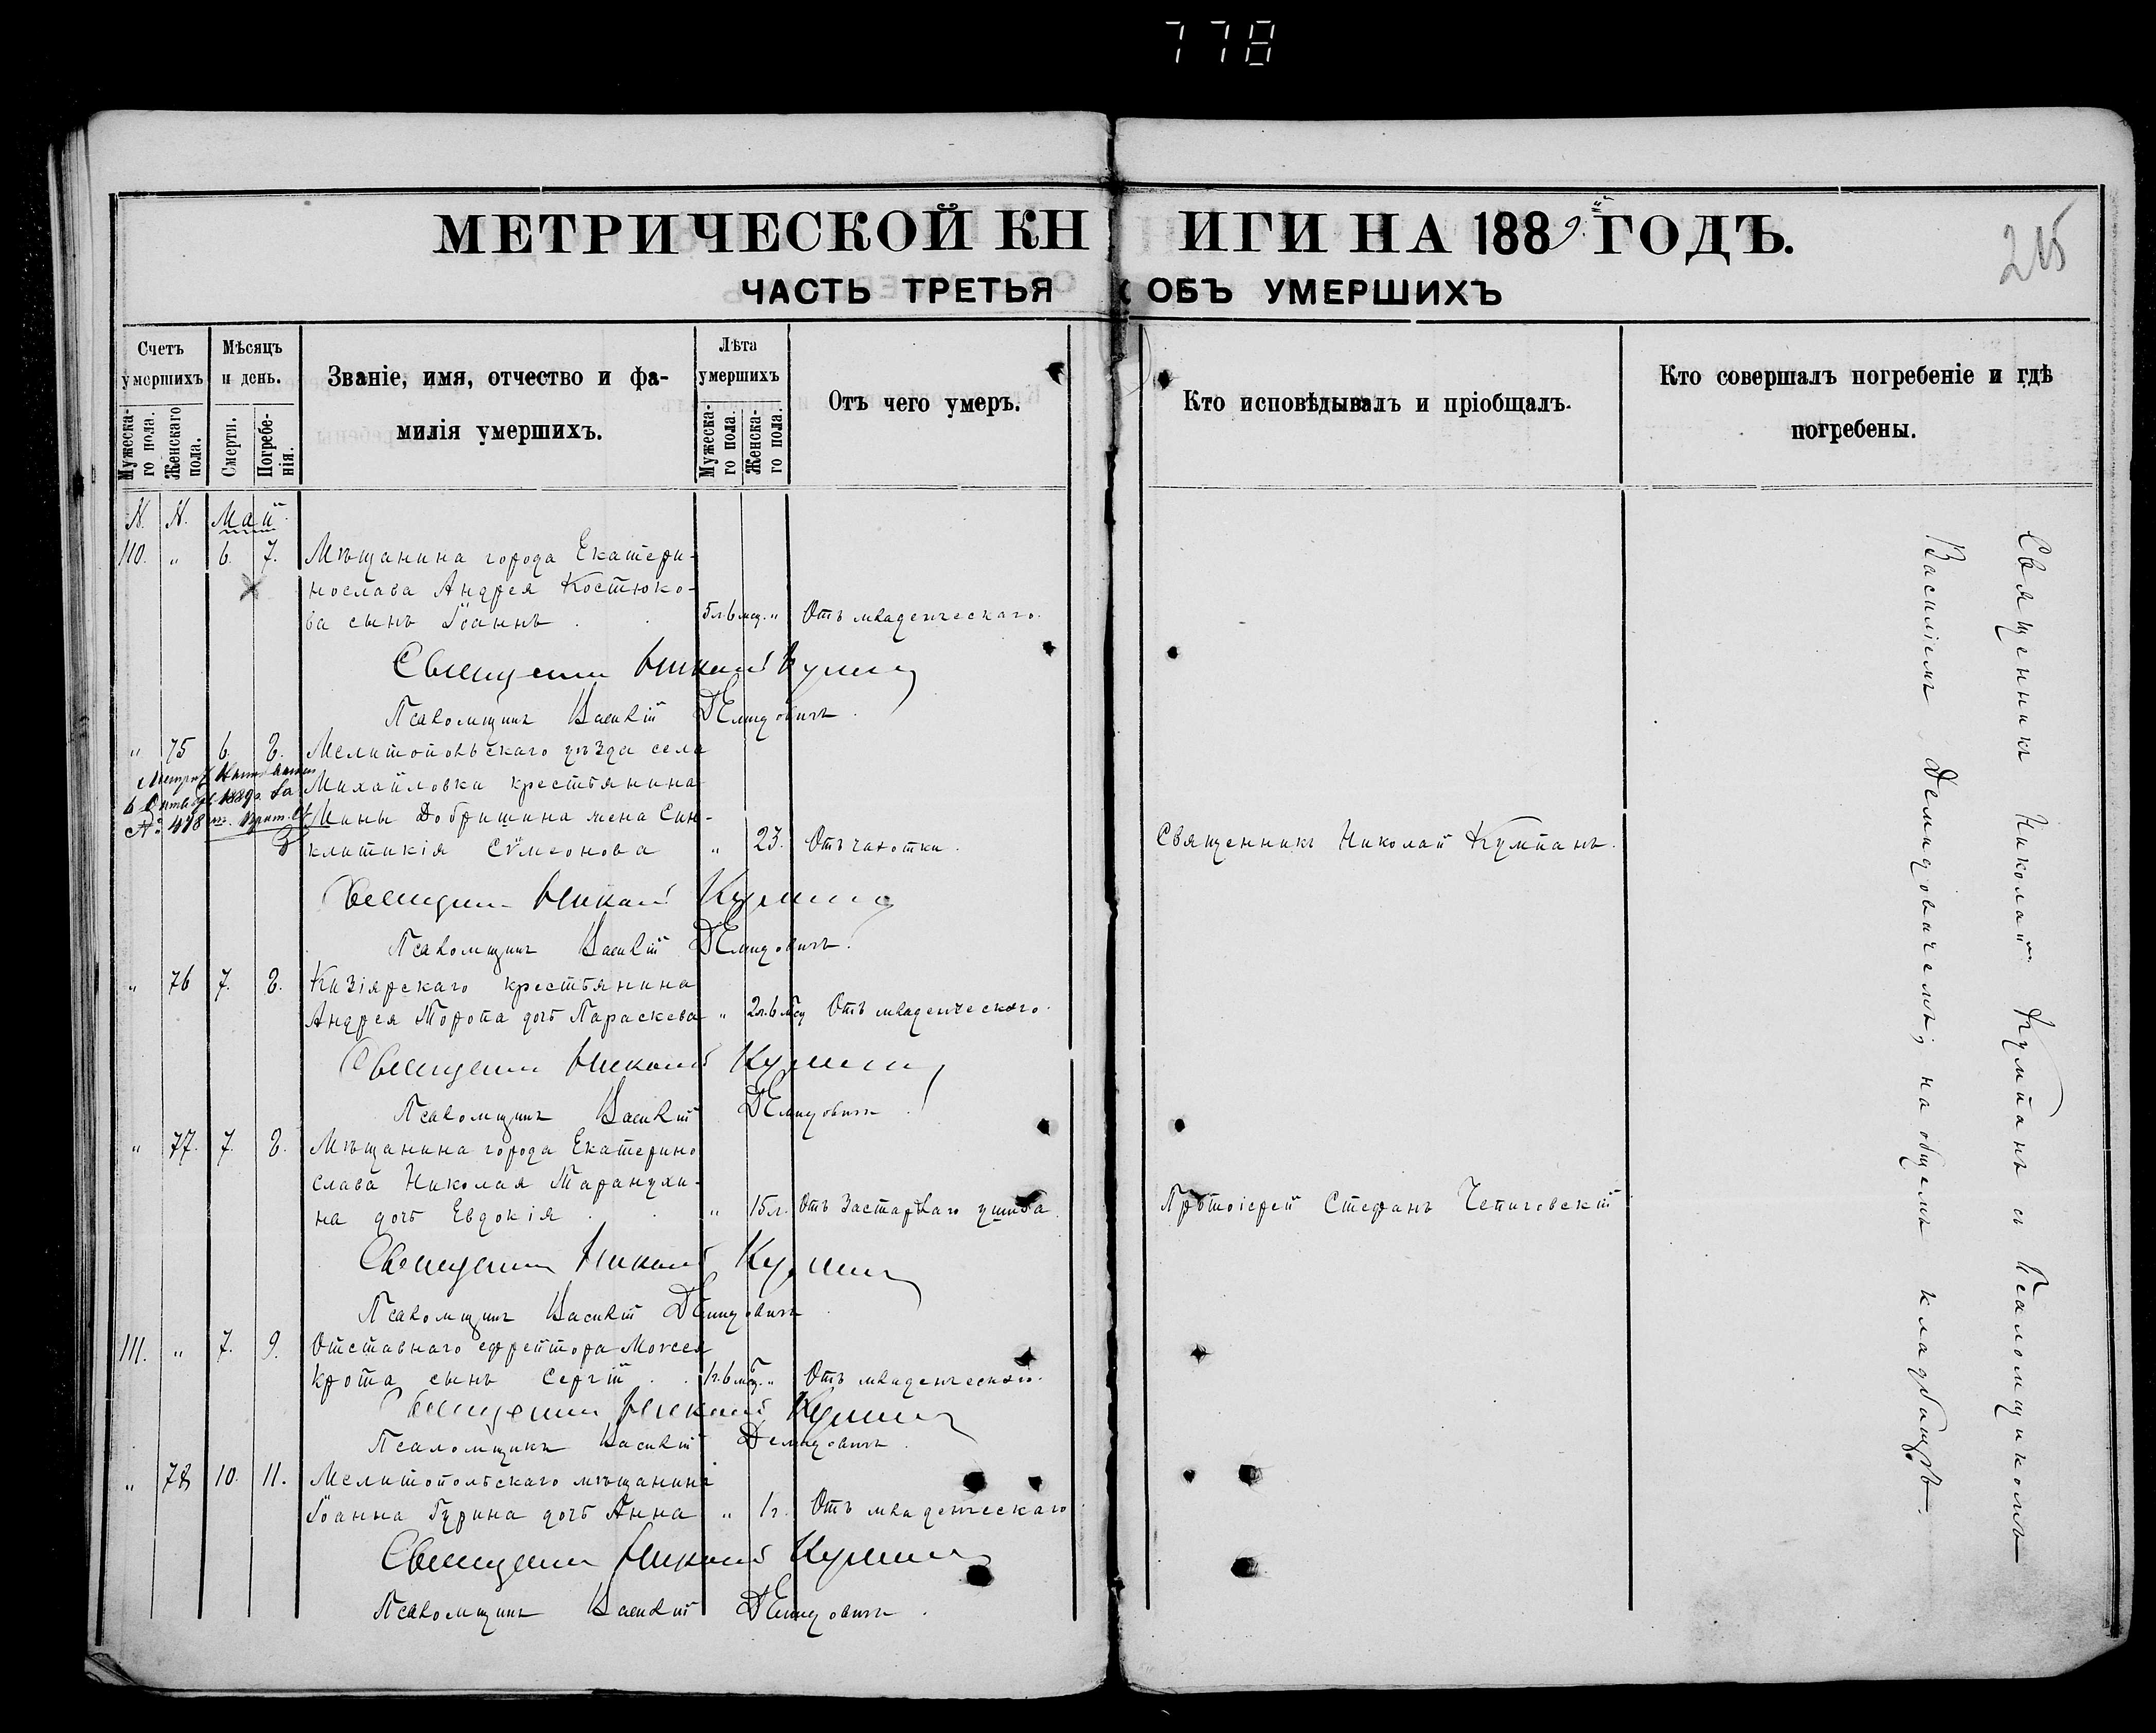 778
МЕТРИЧЕСКОЙ КНИГИ НА 1889 ГОДЪ.
215
ЧАСТЬ ТРЕТЬЯ ОБЪ УМЕРШИХЪ
Счетъ умершихъ
Мужеска-го пола.
Женскаго пола.
Мѣсяцъ и день.
Смерти.
Погребе-нія.
Званіе, имя, отчество и фа-
милія умершихъ.
Лѣта умершихъ
Мужеска-го пола.
Женска-го пола.
Отъ чего умеръ.
Кто исповѣдывалъ и пріобщалъ.
Кто совершалъ погребеніе и гдѣ
погребены.
N. N. Май
110. " 6. 7. Мѣщанина города Екатери-
нослава Андрея Костюко-
ва сынъ Іоаннъ 5 л. 6 мц. " Отъ младенческаго.
Священникъ Николай Кумпанъ
Псаломщикъ Василій Демидовичъ.
" 75 6. 8. Мелитопольскаго уѣзда села
Михайловки крестьянина
Мины Добришина жена Син-
клитикія Сѵмеонова " 23. Отъ чахотки. Священникъ Николай Кумпанъ.
6 Октября 1889 г. за
№ 478
Священникъ Николай Кумпанъ
Псаломщикъ Василій Демидовичъ.
" 76 7. 8. Кизіярскаго крестьянина
Андрея Торопа дочь Параскева " 2 л. 6 мцъ Отъ младенческаго.
Священникъ Николай Кумпанъ
Псаломщикъ Василій Демидовичъ.
" 77. 7. 8. Мѣщанина города Екатерино
слава Николая Таранухи-
на дочь Евдокія " 15 л. Отъ застарѣлаго ушиба. Протоіерей Стефанъ Чепиговскій
Священникъ Николай Кумпанъ
Псаломщикъ Василій Демидовичъ.
111. " 7. 9. Отставнаго ефрейтора Моисея
Крота сынъ Сергій 1 г. 6 мц. " Отъ младенческаго.
Священникъ Николай Кумпанъ
Псаломщикъ Василій Демидовичъ.
" 78 10. 11. Мелитопольскаго мѣщанина
Іоанна Гурина дочь Анна " 1 г. Отъ младенческаго
Священникъ Николай Кумпанъ
Псаломщикъ Василій Демидовичъ.
Священникъ Николай Кумпанъ съ Псаломщикомъ
Василіемъ Демидовичемъ; на общемъ кладбищѣ.